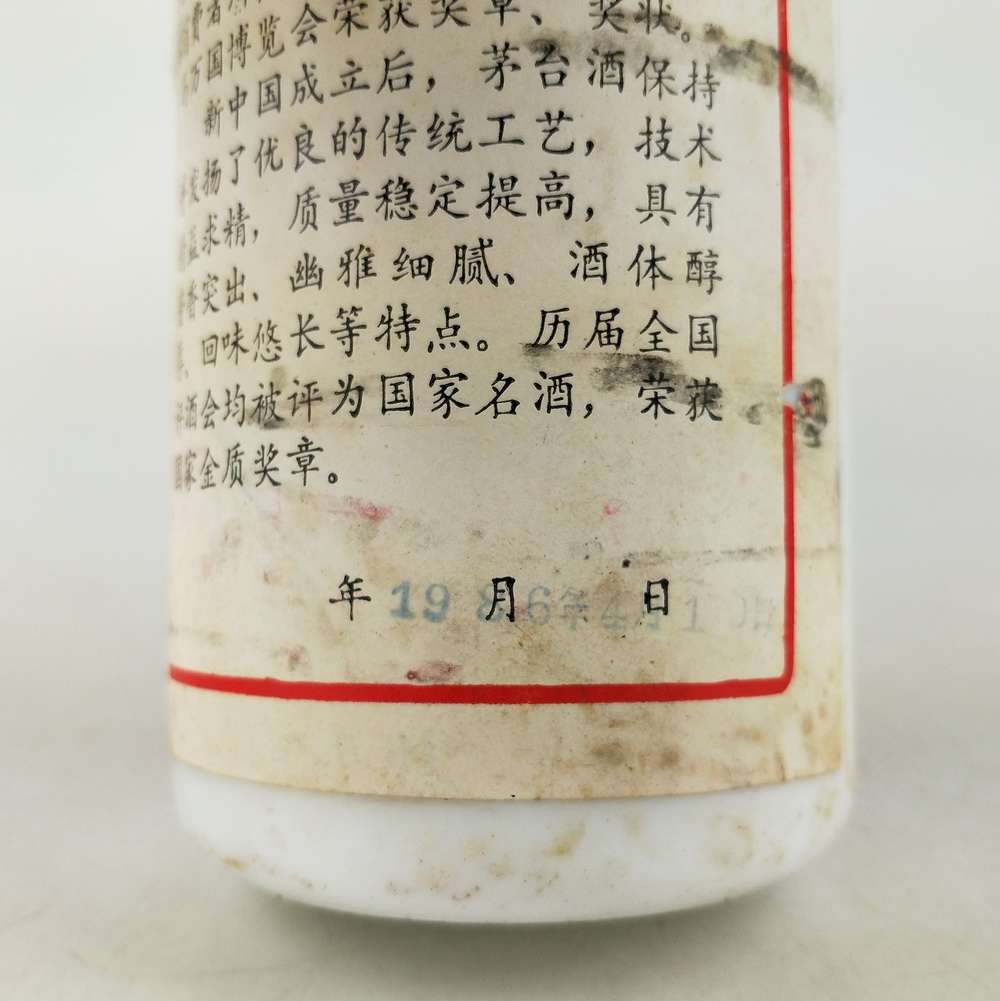 万国博览会荣获奖章、奖状。
新中国成立后，茅台酒保持
发扬了优良的传统工艺，技术
益求精，质量稳定提高，具有
香突出、幽雅细腻、酒体醇
回味悠长等特点。历届全国
评酒会均被评为国家名酒，荣获
国家金质奖章。
年 月 日
1986年4月1